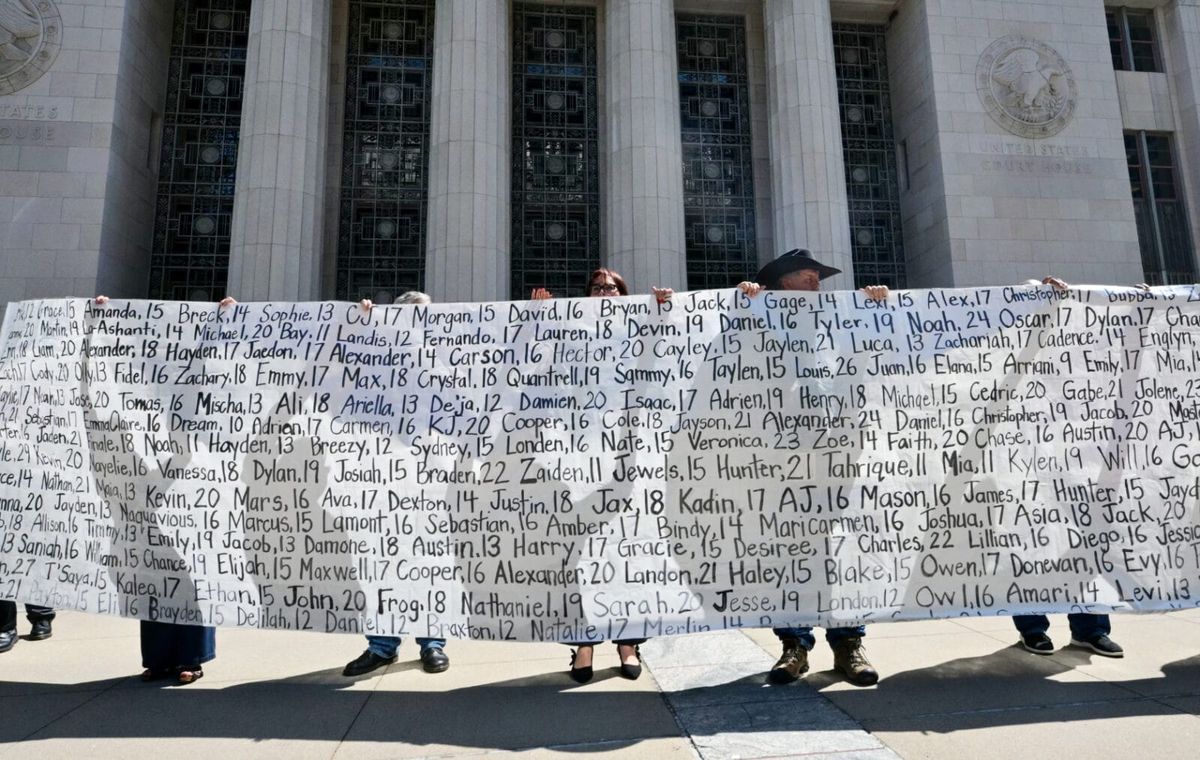 STATES
HOUSE
UNITED STATES
COURT HOUSE
Grace, 15 Amanda, 15 Breck, 14 Sophie, 13 CJ, 17 Morgan, 15 David, 16 Bryan, 15 Jack, 15 Gage, 14 Lexi, 15 Alex, 17 Christopher, 17 Bubba, 15
20 Martin, 19 La-Ashanti, 14 Michael, 20 Bay, 11 Landis, 12 Fernando, 17 Lauren, 18 Devin, 19 Daniel, 16 Tyler, 19 Noah, 24 Oscar, 17 Dylan, 17
18 Liam, 20 Alexander, 18 Hayden, 17 Jaedon, 17 Alexander, 14 Carson, 16 Hector, 20 Cayley, 15 Jaylen, 21 Luca, 13 Zachariah, 17 Cadence, 14 Englyn,
Cody, 20 Olly, 13 Fidel, 16 Zachary, 18 Emmy, 17 Max, 18 Crystal, 18 Quantrell, 19 Sammy, 16 Taylen, 15 Louis, 26 Juan, 16 Elana, 15 Arriani, 9 Emily, 17 Mia,
17 Noah, 13 Jose, 20 Tomas, 16 Mischa, 13 Ali, 18 Ariella, 13 De'ja, 12 Damien, 20 Isaac, 17 Adrien, 19 Henry, 18 Michael, 15 Cedric, 20 Gabe, 21 Jolene,
21 Sebastian, 17 EmmaClaire, 16 Dream, 10 Adrien, 17 Carmen, 16 KJ, 20 Cooper, 16 Cole, 18 Jayson, 21 Alexander, 24 Daniel, 16 Christopher, 19 Jacob, 20
6 Jaden, 21 Finale, 18 Noah, 11 Hayden, 13 Breezy, 12 Sydney, 15 Londen, 16 Nate, 15 Veronica, 23 Zoe, 14 Faith, 20 Chase, 16 Austin, 20 AJ,
29 Kevin, 20 Nayelie, 16 Vanessa, 18 Dylan, 19 Josiah, 15 Braden, 22 Zaiden, 11 Jewels, 15 Hunter, 21 Tahrique, 11 Mia, 11 Kylen, 19 Will, 16
14 Nathan, 21 Maia, 13 Kevin, 20 Mars, 16 Ava, 17 Dexton, 14 Justin, 18 Jax, 18 Kadin, 17 AJ, 16 Mason, 16 James, 17 Hunter, 15
20 Jayden, 13 Naquavious, 16 Marcus, 15 Lamont, 16 Sebastian, 16 Amber, 17 Bindy, 14 Maricarmen, 16 Joshua, 17 Asia, 18 Jack, 20
18 Allison, 16 Timmy, 13 Emily, 19 Jacob, 13 Damone, 18 Austin, 13 Harry, 17 Gracie, 15 Desiree, 17 Charles, 22 Lillian, 16 Diego, 16
13 Saniah, 16 William, 15 Chance, 19 Elijah, 15 Maxwell, 17 Cooper, 16 Alexander, 20 Landon, 21 Haley, 15 Blake, 15 Owen, 17 Donevan, 16 Evy, 16
27 T'Saya, 15 Kalea, 17 Ethan, 15 John, 20 Frog, 18 Nathaniel, 19 Sarah, 20 Jesse, 19 London, 12 Owl, 16 Amari, 14 Levi, 13
21 Payton, 15 Eli, 16 Brayden, 15 Delilah, 12 Daniel, 12 Braxton, 12 Natalie, 17 Merlin, 14